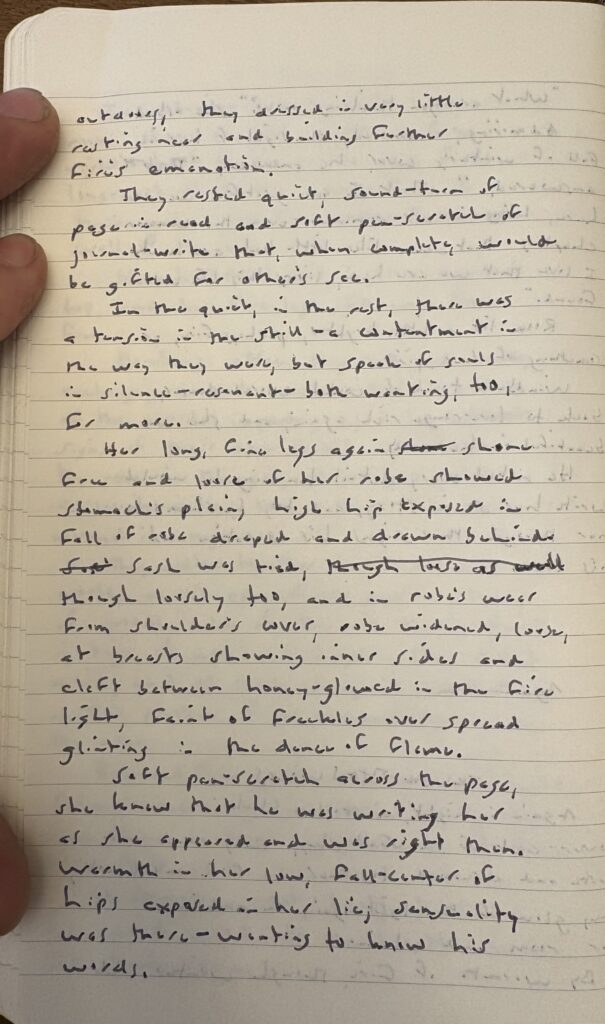 outdoors, they dressed in very little
resting near and building further
fire's emanation.
They rested quiet, sound-turn of
page in read and soft pen-scratch of
journal-write that, when complete, would
be gifted for other's see.
In the quiet, in the rest, there was
a tension in the still – a contentment in
the way they were, but speak of souls
in silence-resonant-both wanting, too,
for more.
Her long, fine legs again shone
free and loose of her robe showed
stomach's plain, high hip exposed in
fall of robe draped and drawn behind
sash was tied, though loose as well
though loosely too, and in robe's wear
from shoulder's cover, robe widened, loose,
at breasts showing inner sides and
cleft between honey-glowed in the fire
light, faint of freckles over spread
glinting in the dance of flame.
Soft pen-scratch across the page,
she knew that he was writing her
as she appeared and was right then.
Warmth in her low, fall-center of
hips exposed in her lie, sensuality
was there – wanting to know his
words.